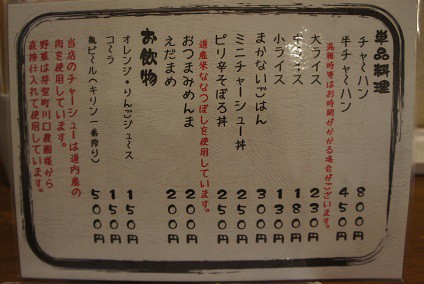 単品料理
チャーハン 800円
半チャーハン 450円
混雑時等はお時間がかかる場合がございます。
大ライス 230円
中ライス 180円
小ライス 130円
まかないごはん 300円
ミニチャーシュー丼 250円
ピリ辛そぼろ丼 250円
道産米ななつぼしを使用しています。
おつまみめんま 200円
えだまめ 200円
お飲物
オレンジ・りんごジュース 150円
コーラ 150円
瓶ビール（キリン一番搾り） 500円
当店のチャーシューは道内産の
肉を使用しています。
野菜は芽室町川口農園様から
直接仕入れて使用しています。